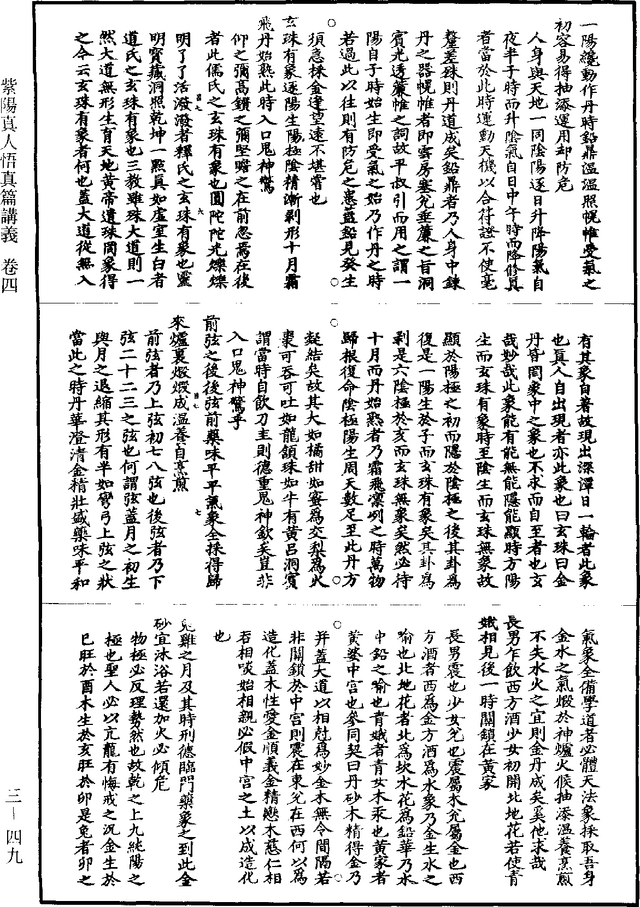 一陽纔動作丹時鉛鼎溫溫照幌帷受氣之
初容易得抽添運用却防危
人身與天地一同陰陽逐日升降陽氣自
夜半子時而升陰氣自日中午時而降修真
者當於此時運動天機以合符證不使毫
釐差殊則丹道成矣鉛鼎者乃人身中鍊
丹之器幌帷者即雲房塞兌垂簾之旨洞
賓光透簾帷之詞故平叔引而用之謂一
陽自子時始生即受氣之始乃作丹之時
若過此以往則有防危之患蓋鉛見癸生
須急採金逢望遠不堪嘗也
玄珠有象逐陽生陽極陰精漸剝形十月霜
飛丹始熟此時入口鬼神驚
仰之彌高鑽之彌堅瞻之在前忽焉在後
者此儒氏之玄珠有象也圓陀陀光爍爍
明了了活潑潑者釋氏之玄珠有象也靈
明寶藏洞照乾坤一點真如虛室生白者
道氏之玄珠有象也三教雖殊大道則一
然大道無形生育天地黃帝遺珠罔象得
之今云玄珠有象者何也蓋大道從無入
有其象自著故現出深潭日一輪者此象
也真人自出現者亦此象也曰玄珠曰金
丹皆罔象中之象也不求而自至者也玄
哉妙哉此象能有能無能隱能顯時方陽
生而玄珠有象時至陰生而玄珠無象故
顯於陽極之初而隱於陰極之後其卦為
復是一陽生於子而玄珠有象矣其卦為
剝是六陰極於亥而玄珠無象矣然必待
十月而丹始熟者乃霜飛凜冽之時萬物
歸根復命陰極陽生周天數足至此丹方
凝結矣故其大如橘甜如蜜為交梨為火
棗可吞可吐如龍頷珠如牛有黃呂洞賓
謂當時自飲刀圭則德重鬼神欽矣豈非
入口鬼神驚乎
前弦之後後弦前藥味平平氣象全採得歸
來爐裏煅煅成溫養自烹煎
前弦者乃上弦初七八弦也後弦者乃下
弦二十二三之弦也何謂弦蓋月之初生
與月之退縮其形有半如彎弓上弦之狀
當此之時丹華澄清金精壯盛藥味平和
氣象全備學道者必體天法象採取吾身
金水之氣煅於神爐火候抽添溫養烹煎
不失水火之宜則金丹成矣奚他求哉
長男乍飲西方酒少女初開北地花若使青
娥相見後一時關鎖在黃家
長男震也少女兌也震屬木兌屬金也西
方酒者西為金方酒為水象乃金生水之
喻也北地花者北為坎水花為鉛華乃水
中鉛之喻也青娥者青女木汞也黃家者
黃婆中宮也參同契曰丹砂木精得金乃
并蓋大道以相尅為妙金木無令間隔若
非關鎖於中宮則震在東兌在西何以為
造化蓋木性愛金順義金精戀木慈仁相
吞相啖始相親必假中宮之土以成造化
也
兔雞之月及其時刑德臨門藥象之到此金
砂宜沐浴若還加火必傾危
物極必反理勢然也故乾之上九純陽之
極也聖人必以亢龍有悔戒之況金生於
巳旺於酉木生於亥旺於卯是兔者卯之
紫陽真人悟真篇講義　卷四
三—四九